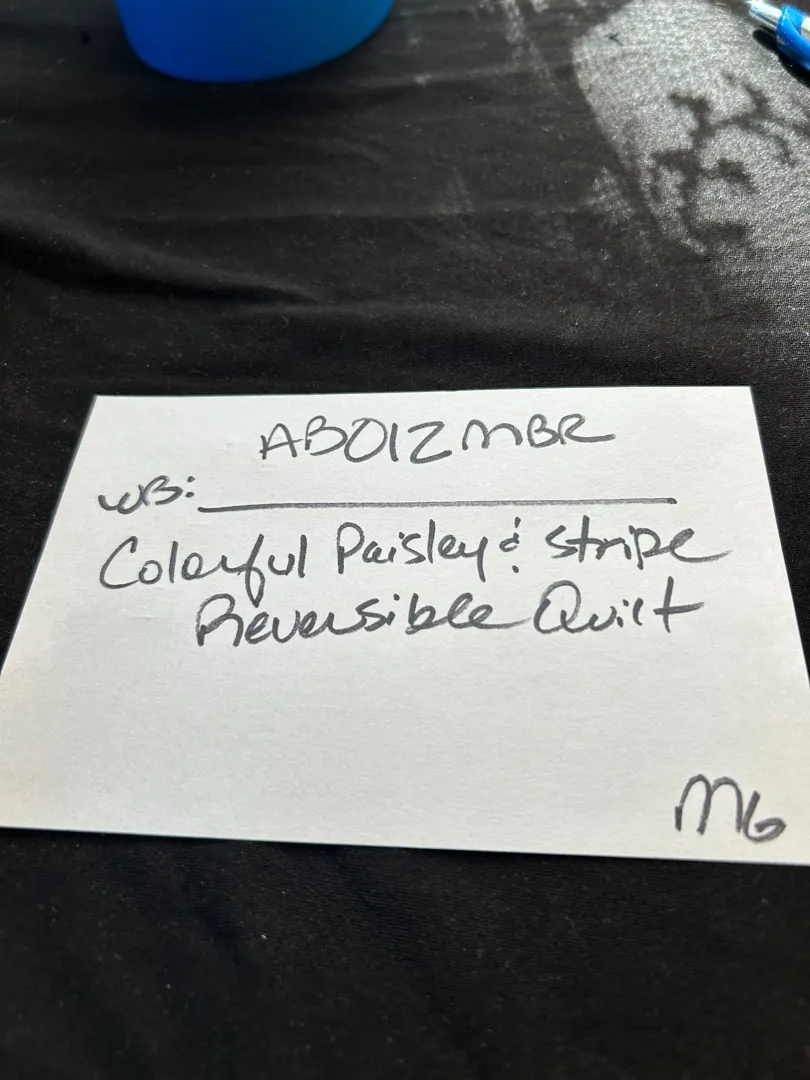 AB012MBR
WB:
Colorful Paisley & Stripe
Reversible Quilt
MG